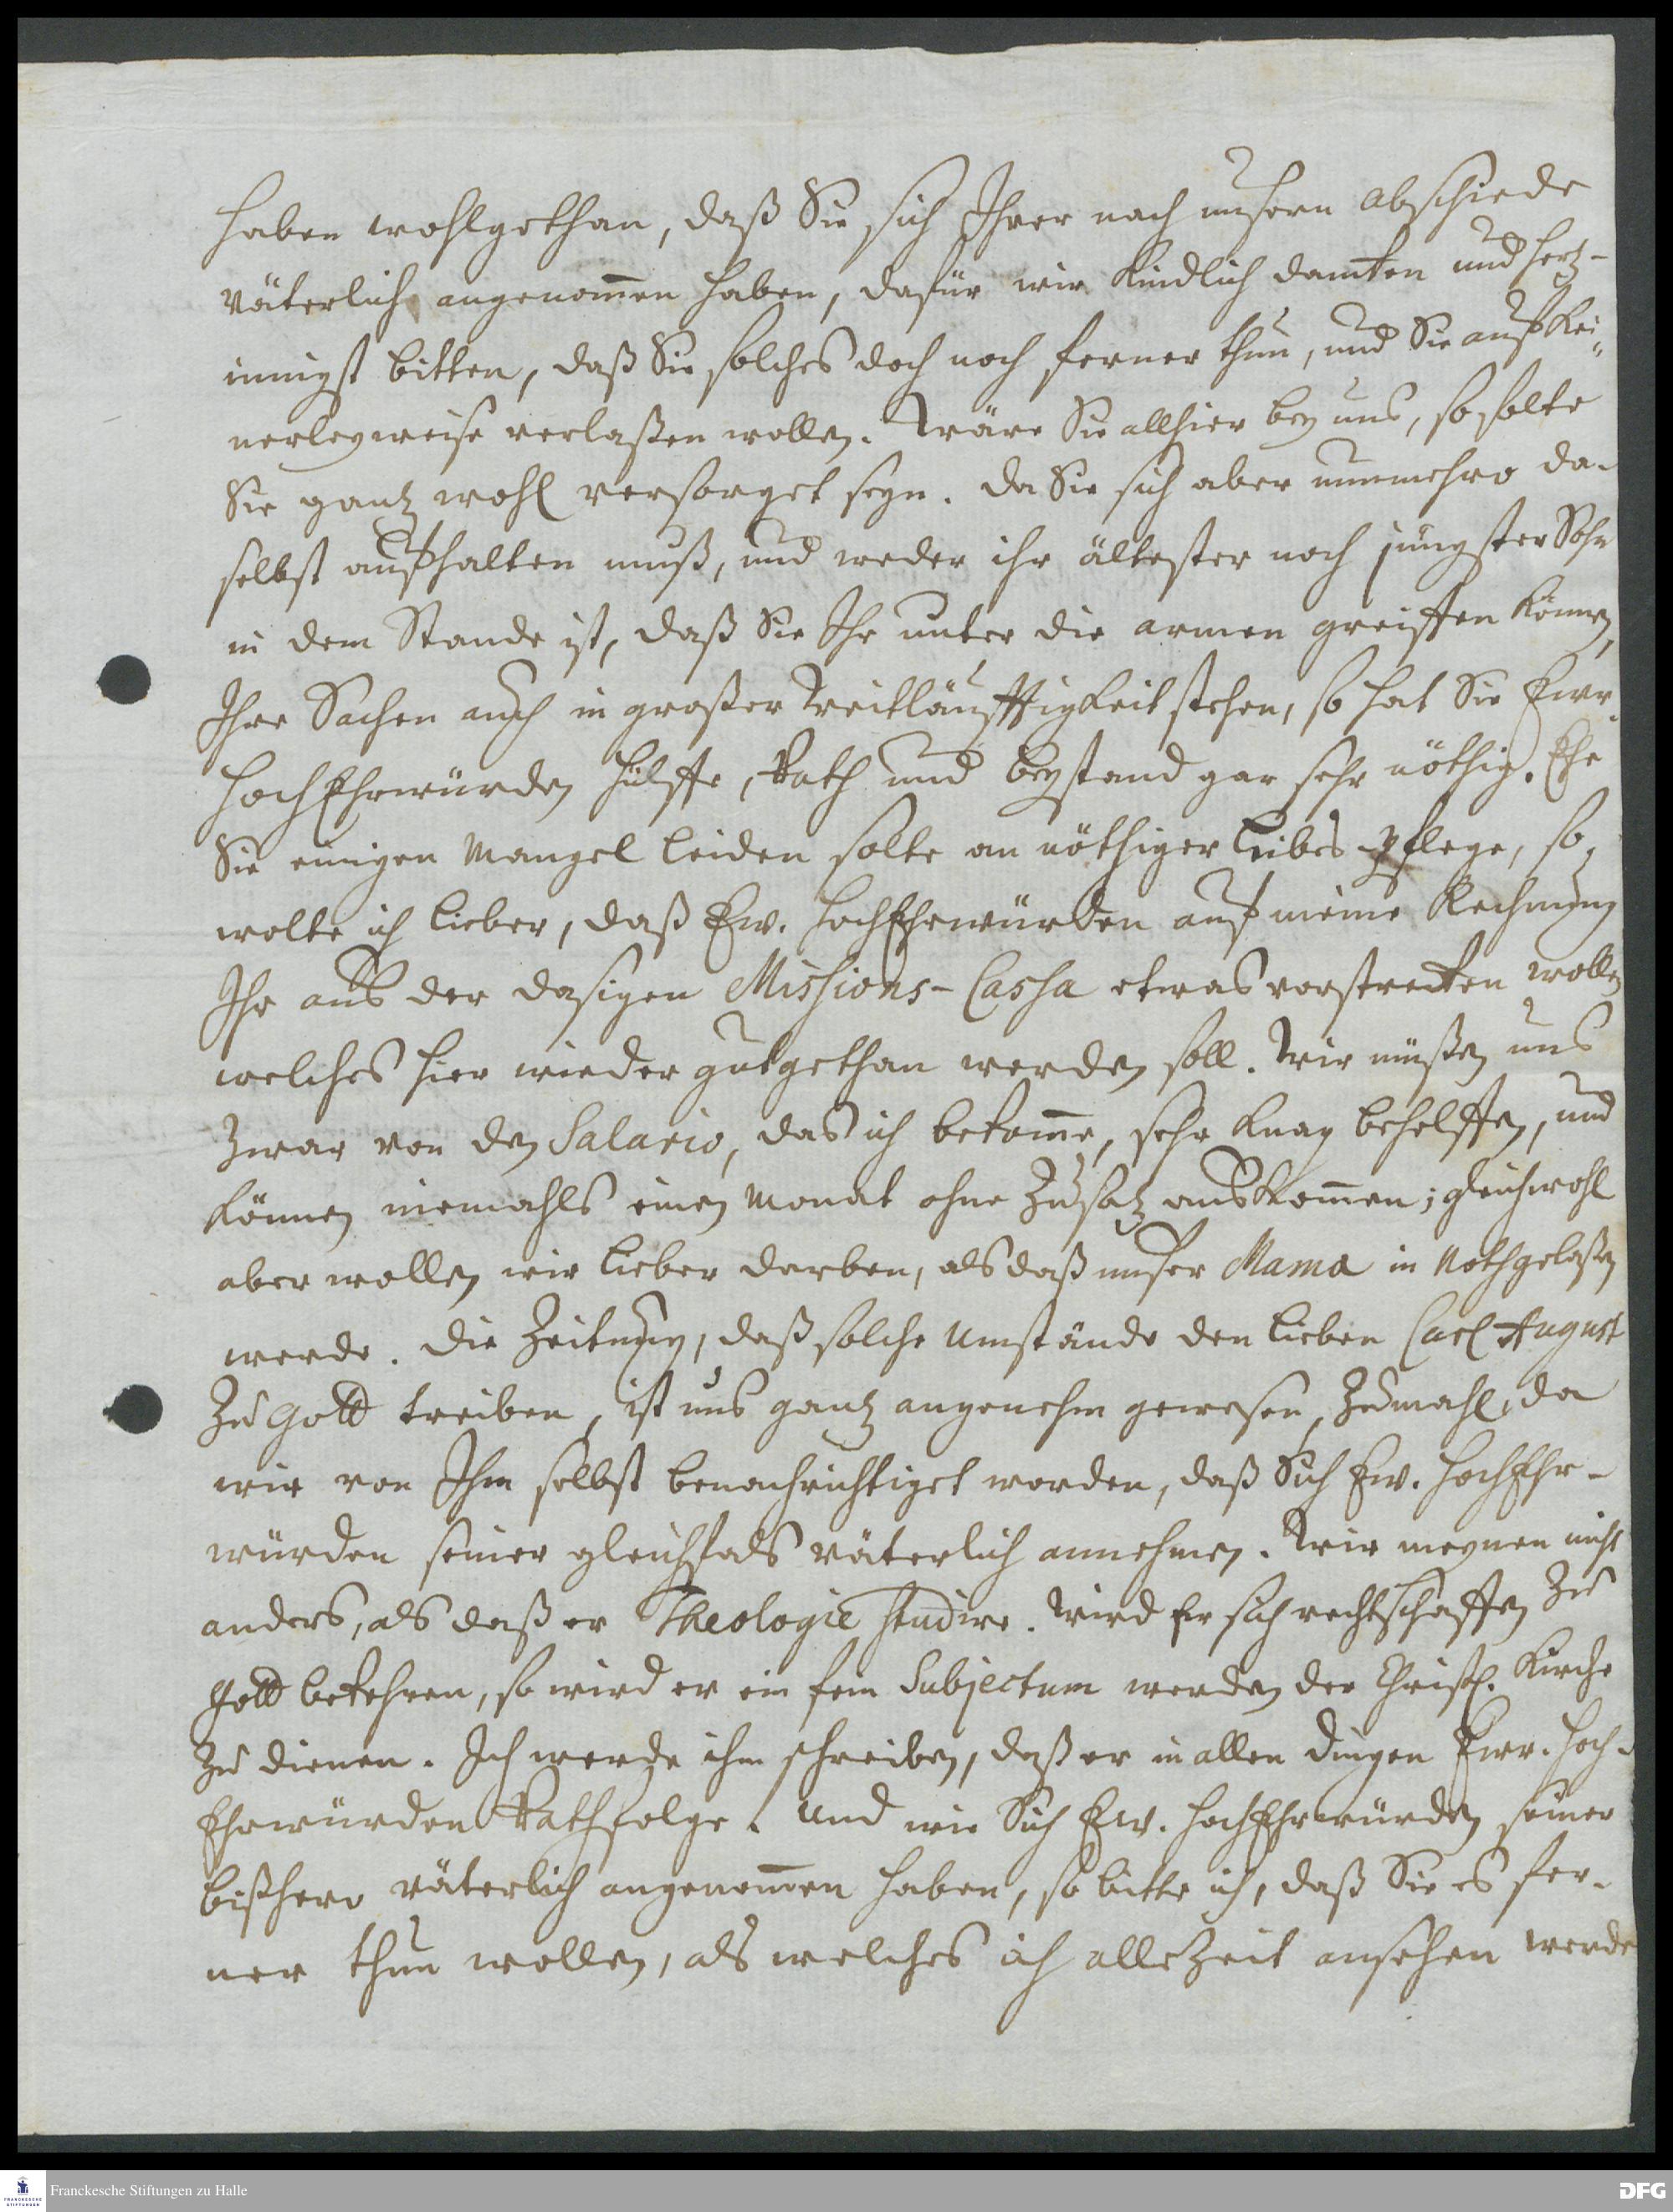 haben wohlgethan, daß Sie sich Ihrer nach unsern Abschiede
väterlich angenom̅en haben, dafür wir kindlich danken und hertz-
innigst bitten, daß Sie solches doch noch ferner thun, und Sie auf kei-
nerleyweise verlaßen wollen. Wäre Sie allhier bey uns, so solte
Sie gantz wohl versorget seyn. Da Sie sich aber nunmehro da-
selbst aufhalten muß, und weder ihr ältester noch jüngster Sohn
in dem Stande ist, daß Sie Ihr unter die armen greiffen können,
Ihre Sachen auch in großer Weitläufftigkeit stehen, so hat Sie Ewr.
HochEhrwürden Hülffe, Rath und Beystand gar sehr nöthig. Ehe
Sie einigen Mangel leiden solte an nöthiger Leibes-Pflege, so
wolte ich lieber, daß Ew. HochEhrwürden auf meine Rechnung
Ihr aus der dasigen Missions-Cassa etwas vorstrecken wollen
welches hier wieder gutgethan werden soll. Wir müßen uns
zwar von den Salario, das ich bekom̅e, sehr knap behelffen, und
können niemahls einen Monat ohne Zusatz auskom̅en; gleichwohl
aber wollen wir lieber darben, als daß unser Mama in Noth gelaßen
werde. Die Zeitung, daß solche Umstände den lieben Carl August
zu Gott treiben, ist uns gantz angenehm gewesen, zumahl, da
wir von Ihm selbst benachrichtiget worden, daß Sich Ew. HochEhr-
würden seiner gleichfals väterlich annehmen. Wir meynen nicht
anders, als daß er Theologie studire. Wird Er sich rechtschaffen zu
Gott bekehren, so wird er ein fein Subjectum werden der Christl. Kirche
zu dienen. Ich werde ihm schreiben, daß er in allen Dingen Ewr. Hoch-
Ehrwürden Rath folge. Und wie Sich Ew. HochEhrwürden seiner
bißhero väterlich angenom̅en haben, so bitte ich, daß Sie es fer-
ner thun wollen, als welches ich allezeit ansehen werde
Franckesche Stiftungen zu Halle
DFG